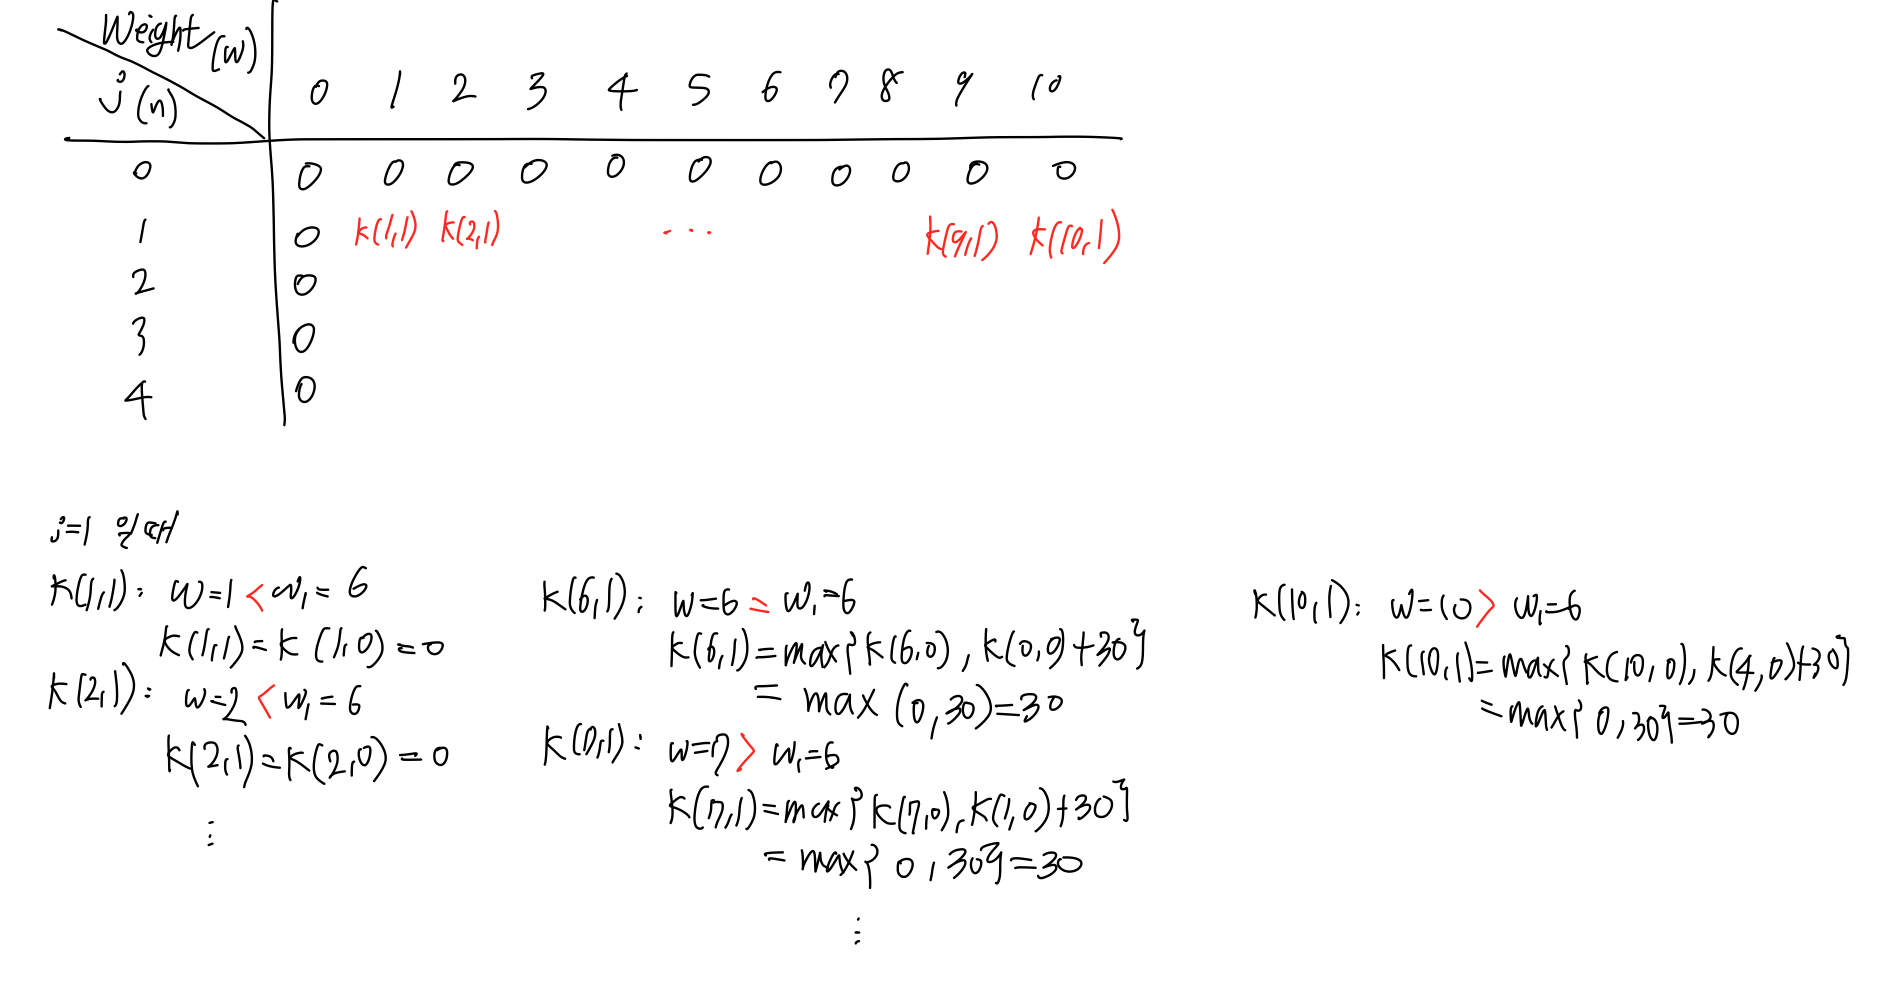 Weight (w)
j (n)
0 1 2 3 4 5 6 7 8 9 10
0 0 0 0 0 0 0 0 0 0 0 0
1 0 K(1,1) K(2,1) ... K(9,1) K(10,1)
2 0
3 0
4 0
j=1 일때
K(1,1): w=1 < w₁=6
K(1,1)=K(1,0)=0
K(2,1): w=2 < w₁=6
K(2,1)=K(2,0)=0
⋮
K(6,1): w=6 = w₁=6
K(6,1)=max{K(6,0), K(0,0)+30}
= max(0,30)=30
K(7,1): w=7 > w₁=6
K(7,1)=max{K(7,0), K(1,0)+30}
= max{0,30}=30
⋮
K(10,1): w=10 > w₁=6
K(10,1)=max{K(10,0), K(4,0)+30}
=max{0,30}=30